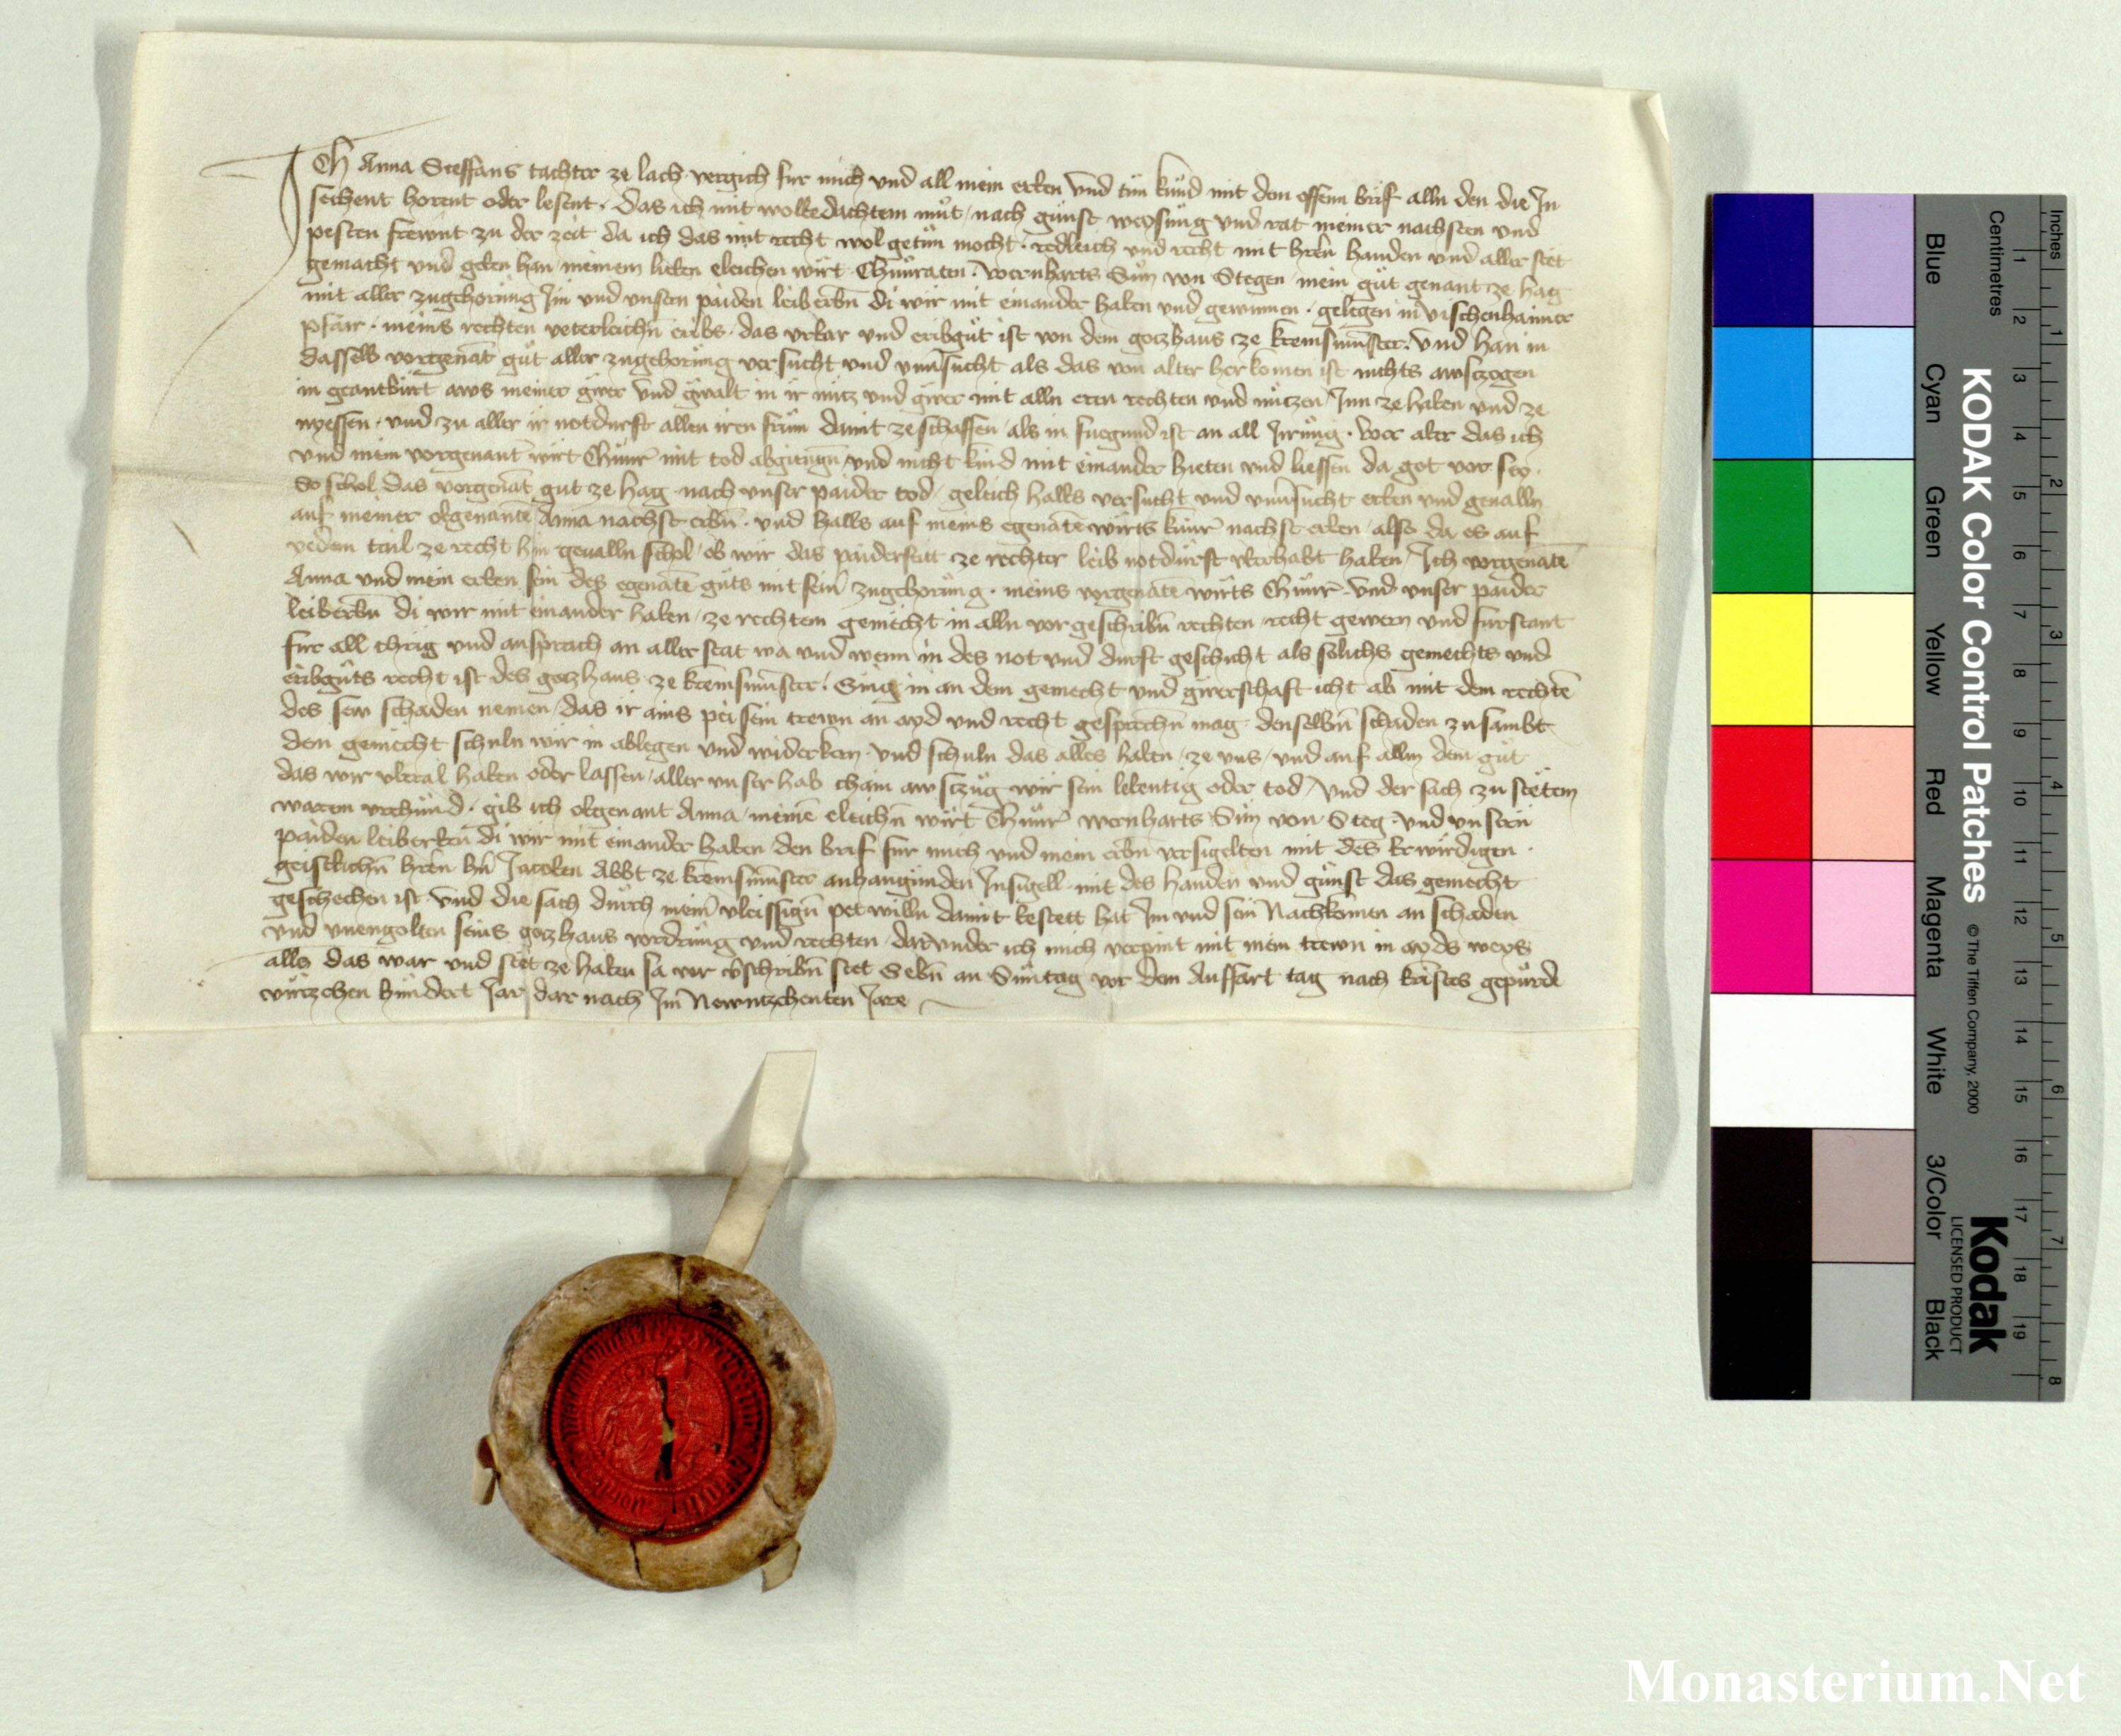 Ich Anna Steffans tachter ze lach vergich fur mich vnd all mein erben vnd tun kund mit dem offenn brif alln den die In
sechent horent oder lesent · Das ich mit wolbedachtem mut / nach gunst weysung vnd rat meiner nachsten vnd
pesten frewnt zu der zeit da ich das mit recht wol getun mocht · redleich vnd recht mit hern handen vnd aller stet
gemacht vnd geben han meinem lieben eleichen wirt Chunraten · Wernharts Sun von Stegen mein gut genant ze hag
mit aller zugehorung Im vnd vnsern paiden leiberbn di wir mit einander haben vnd gewinnen · gelegen in vischenhaimer
pfarr · meins rechten veterleichn eribs · das vrbar vnd eribgut ist von dem gotzhaus ze kremsmunster · vnd han in
dasselb vorgenant gut aller zugehorung versucht vnd vnuersucht als das von alter herkomen ist nichts awsczogen
in geantburt aws meiner gwer vnd gwalt in ir nutz vnd gwer mit alln eren rechten vnd nutzen / Inn ze haben vnd ze
nyessen · vnd zu aller ir notdurft allen iren frum damit ze schaffen / als in fuegund ist an all Irrung · Wer aber das ich
vnd mein vorgenant wirt Chunr mit tod abgiengn / vnd nicht kind mit einander hieten vnd liessen da got vor sey ·
So schol das vorgenant gut ze hag nach vnser paider tod / geleich halbs versucht vnd vnuersucht erben vnd geualln
auf meiner obgenante Anna nachst erbn · vnd halbs auf meins egenate wirts kunr nachst erben / also da es auf
yedem tail ze recht hin geualln schol / ob wir das paiderseitt ze rechter leib notdurft vberhabt haben / Ich vorgenate
Anna vnd mein erben sein des egenate guts mit sein zugehorung · meins vorgenate wirts Chunr vnd vnser paider
leiberbn di wir mit einander haben / ze rechtem gemecht in alln vorgeschribn rechten / recht gewern vnd furstant
fur all chrig vnd ansprach an aller stat wa vnd wenn in des not vnd durft geschicht als solichs gemechts vnd
eribguts recht ist des gotzhaus ze kremsmunster · Ging in an dem gemecht vnd gwerschaft icht ab mit dem rechte
des sew schaden nemen / das ir ains pei sein trewn an ayd vnd recht gesprechn mag denselbn schaden zusambt
dem gemecht schuln wir in ablegen vnd widerkern · vnd schuln das alles haben / ze vns / vnd auf allm dem gut
das wir vberal haben oder lassen / aller vnser hab chain awsczug wir sein lebentig oder tod / vnd der sach zu stetem
warem vrchund · gib ich obgenant Anna / meine eleichn wirt Chunr wernharts Sun von Steg vnd vnsern
paiden leiberben di wir mit einander haben den brif fur mich vnd mein erbn versigelten mit des Erwirdigen ·
geistlichn hern hn Jacoben Abbt ze kremsmunster anhangunden Insigell mit des handen vnd gunst das gemecht
geschechen ist vnd die sach durch mein vleissign pet willn damit bestett hat Im vnd sein Nachkomen an schaden
vnd vnengolten seins gotzhaus vordrung vnd rechten / darvnder ich mich verpint mit mein trewn in ayds weys
alles das war vnd stet ze haben sa vor geschribn stet Gebn an Suntag vor dem Auffart tag nach kristes gepurde
virtzehen hundert Jar / dar nach Im Newntzehenten Jare
KODAK Color Control Patches
© The Tiffen Company, 2000
Kodak
LICENSED PRODUCT
Blue Cyan Green Yellow Red Magenta White 3/Color Black
Centimetres 1 2 3 4 5 6 7 8 9 10 11 12 13 14 15 16 17 18 19
Inches 1 2 3 4 5 6 7 8
Monasterium.Net